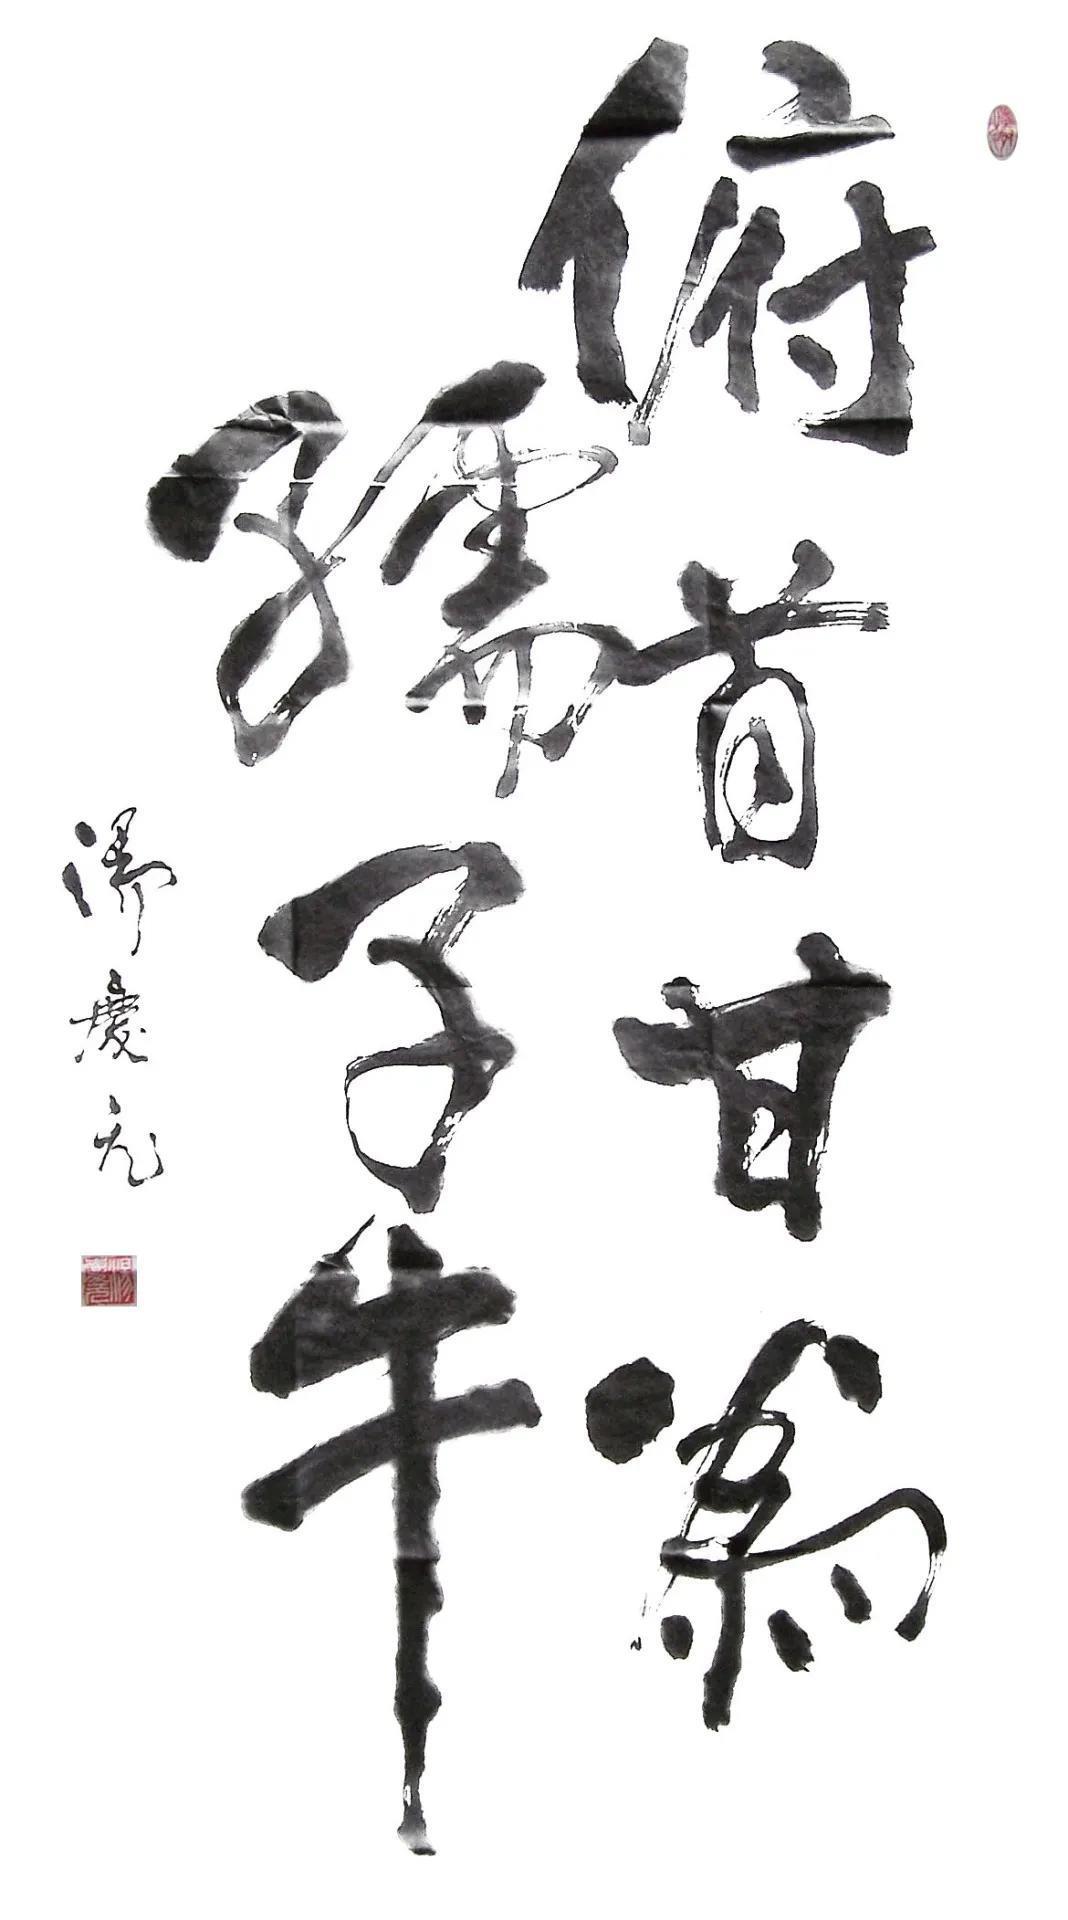 俯首甘為
孺子牛
慶元